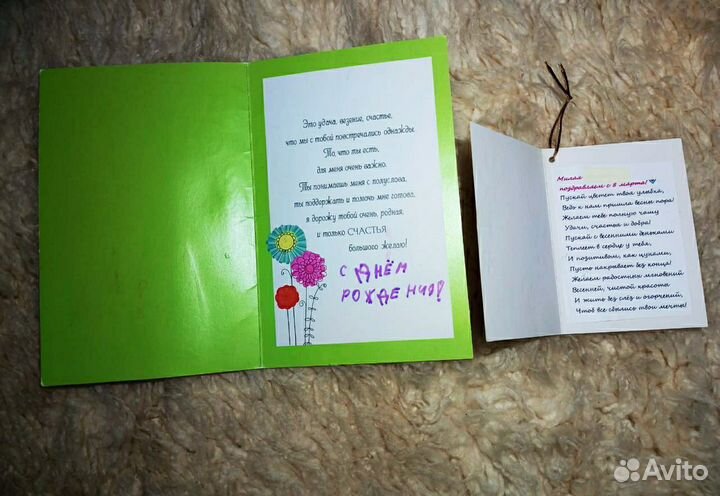 Это удача, везение, счастье,
что мы с тобой повстречались однажды.
То, что ты есть,
для меня очень важно.
Ты понимаешь меня с полуслова,
ты поддержать и помочь мне готова,
я дорожу тобой очень, родная,
и только СЧАСТЬЯ
большого желаю!
С ДНЁМ
РОЖДЕНИЯ!
Милая
поздравляем с 8 марта!
Пускай цветет твоя улыбка,
Ведь к нам пришла весны пора!
Желаем тебе полную чашу
Удачи, счастья и добра!
Пускай с весенними деньками
Теплеет в сердце у тебя,
И позитивом, как цунами,
Пусть накрывает без конца!
Желаем радостных мгновений
Весенней, чистой красоты
И жить без слёз и огорчений,
Чтоб все сбылись твои мечты!
Avito